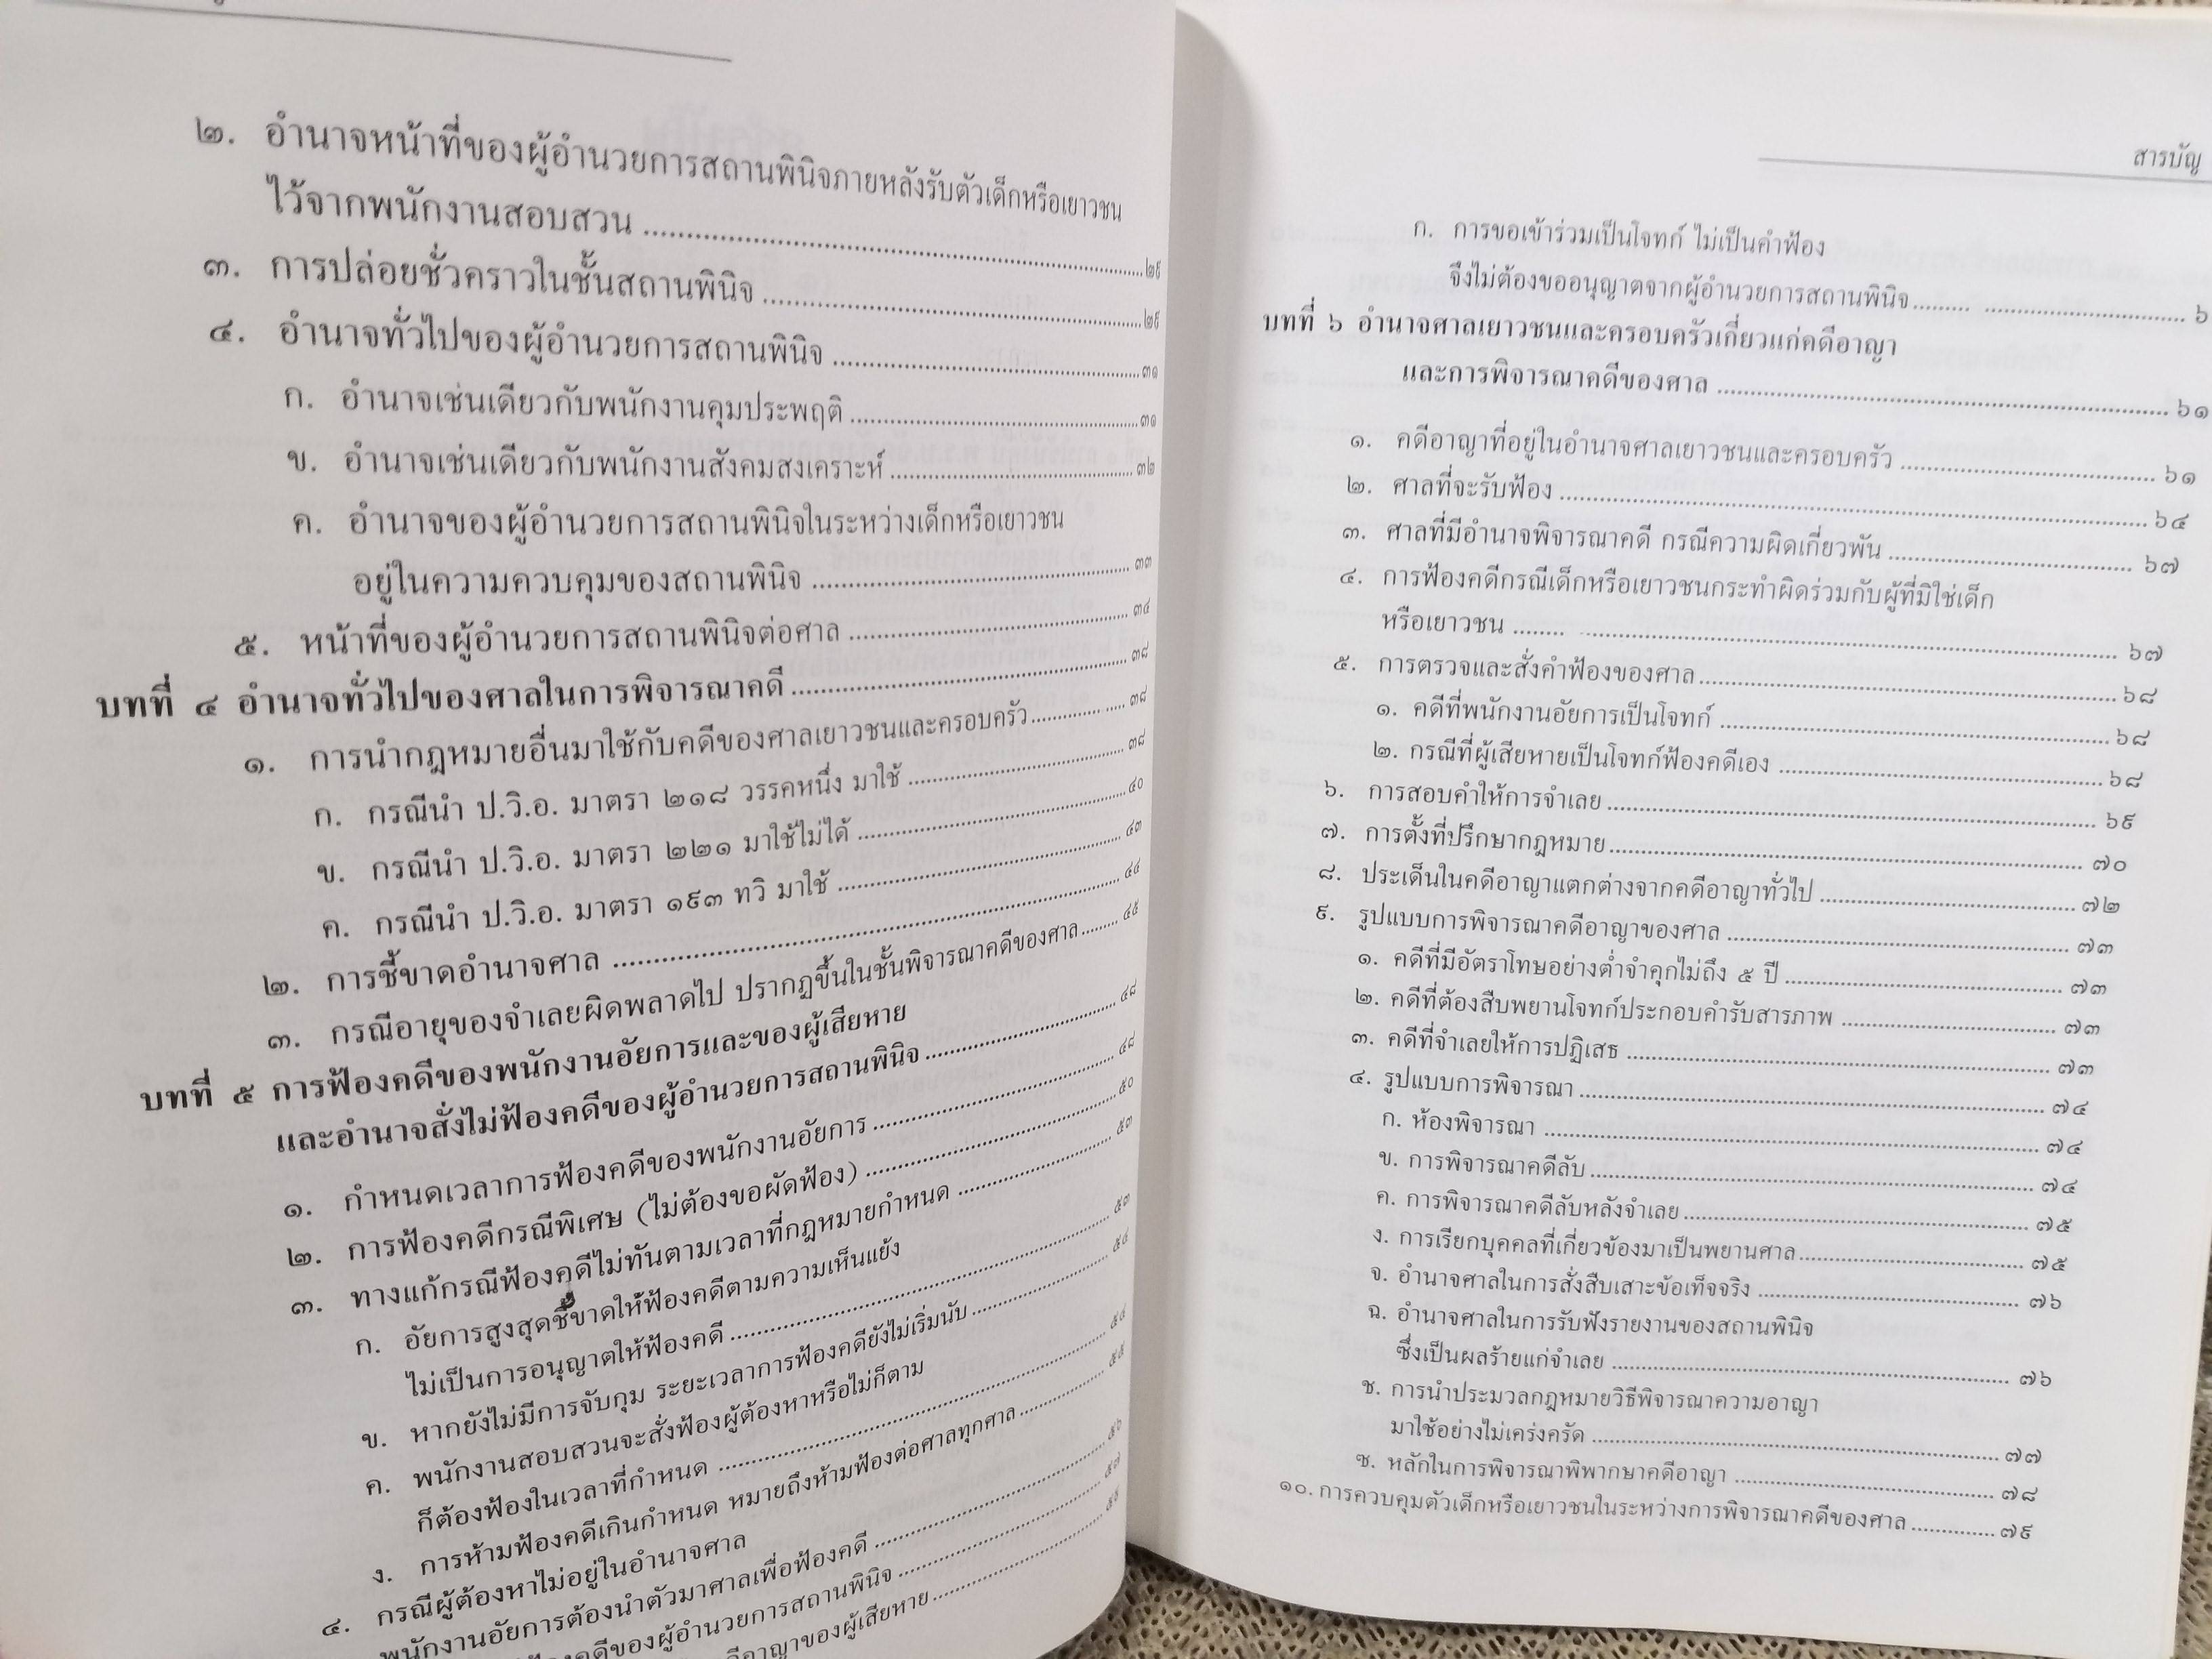 ๒. อำนาจหน้าที่ของผู้อำนวยการสถานพินิจภายหลังรับตัวเด็กหรือเยาวชน
ไว้จากพนักงานสอบสวน ........ ๒๙
๓. การปล่อยชั่วคราวในชั้นสถานพินิจ ........ ๒๙
๔. อำนาจทั่วไปของผู้อำนวยการสถานพินิจ ........ ๓๑
ก. อำนาจเช่นเดียวกับพนักงานคุมประพฤติ ........ ๓๑
ข. อำนาจเช่นเดียวกับพนักงานสังคมสงเคราะห์ ........ ๓๒
ค. อำนาจของผู้อำนวยการสถานพินิจในระหว่างเด็กหรือเยาวชน
อยู่ในความควบคุมของสถานพินิจ ........ ๓๓
๕. หน้าที่ของผู้อำนวยการสถานพินิจต่อศาล ........ ๓๔
บทที่ ๔ อำนาจทั่วไปของศาลในการพิจารณาคดี ........ ๓๘
๑. การนำกฎหมายอื่นมาใช้กับคดีของศาลเยาวชนและครอบครัว ........ ๓๘
ก. กรณีนำ ป.วิ.อ. มาตรา ๒๑๘ วรรคหนึ่ง มาใช้ ........ ๓๘
ข. กรณีนำ ป.วิ.อ. มาตรา ๒๒๑ มาใช้ไม่ได้ ........ ๔๐
ค. กรณีนำ ป.วิ.อ. มาตรา ๑๙๓ ทวิ มาใช้ ........ ๔๓
๒. การชี้ขาดอำนาจศาล ........ ๔๔
๓. กรณีอายุของจำเลยผิดพลาดไป ปรากฏขึ้นในชั้นพิจารณาคดีของศาล ........ ๔๕
บทที่ ๕ การฟ้องคดีของพนักงานอัยการและของผู้เสียหาย
และอำนาจสั่งไม่ฟ้องคดีของผู้อำนวยการสถานพินิจ ........ ๔๘
๑. กำหนดเวลาการฟ้องคดีของพนักงานอัยการ ........ ๔๘
๒. การฟ้องคดีกรณีพิเศษ (ไม่ต้องขอผัดฟ้อง) ........ ๕๐
๓. ทางแก้กรณีฟ้องคดีไม่ทันตามเวลาที่กฎหมายกำหนด ........ ๕๓
ก. อัยการสูงสุดชี้ขาดให้ฟ้องคดีตามความเห็นแย้ง
ไม่เป็นการอนุญาตให้ฟ้องคดี ........ ๕๓
ข. หากยังไม่มีการจับกุม ระยะเวลาการฟ้องคดียังไม่เริ่มนับ ........ ๕๔
ค. พนักงานสอบสวนจะสั่งฟ้องผู้ต้องหาหรือไม่ก็ตาม
ก็ต้องฟ้องในเวลาที่กำหนด ........
ง. การห้ามฟ้องคดีเกินกำหนด หมายถึงห้ามฟ้องต่อศาลทุกศาล ........
๔. กรณีผู้ต้องหาไม่อยู่ในอำนาจศาล
พนักงานอัยการต้องนำตัวมาศาลเพื่อฟ้องคดี ........ ๕๖
ฟ้องคดีของผู้อำนวยการสถานพินิจ ........ ๕๗
คดีอาญาของผู้เสียหาย ........
สารบัญ
ก. การขอเข้าร่วมเป็นโจทก์ ไม่เป็นคำฟ้อง
จึงไม่ต้องขออนุญาตจากผู้อำนวยการสถานพินิจ ........ ๖
บทที่ ๖ อำนาจศาลเยาวชนและครอบครัวเกี่ยวแก่คดีอาญา
และการพิจารณาคดีของศาล ........ ๖๑
๑. คดีอาญาที่อยู่ในอำนาจศาลเยาวชนและครอบครัว ........ ๖๑
๒. ศาลที่จะรับฟ้อง ........ ๖๔
๓. ศาลที่มีอำนาจพิจารณาคดี กรณีความผิดเกี่ยวพัน ........ ๖๗
๔. การฟ้องคดีกรณีเด็กหรือเยาวชนกระทำผิดร่วมกับผู้ที่มิใช่เด็ก
หรือเยาวชน ........ ๖๗
๕. การตรวจและสั่งคำฟ้องของศาล ........ ๖๘
๑. คดีที่พนักงานอัยการเป็นโจทก์ ........ ๖๘
๒. กรณีที่ผู้เสียหายเป็นโจทก์ฟ้องคดีเอง ........ ๖๘
๖. การสอบคำให้การจำเลย ........ ๖๙
๗. การตั้งที่ปรึกษากฎหมาย ........ ๗๐
๘. ประเด็นในคดีอาญาแตกต่างจากคดีอาญาทั่วไป ........ ๗๒
๙. รูปแบบการพิจารณาคดีอาญาของศาล ........ ๗๓
๑. คดีที่มีอัตราโทษอย่างต่ำจำคุกไม่ถึง ๕ ปี ........ ๗๓
๒. คดีที่ต้องสืบพยานโจทก์ประกอบคำรับสารภาพ ........ ๗๓
๓. คดีที่จำเลยให้การปฏิเสธ ........ ๗๓
๔. รูปแบบการพิจารณา ........ ๗๔
ก. ห้องพิจารณา ........ ๗๔
ข. การพิจารณาคดีลับ ........ ๗๔
ค. การพิจารณาคดีลับหลังจำเลย ........ ๗๕
ง. การเรียกบุคคลที่เกี่ยวข้องมาเป็นพยานศาล ........ ๗๕
จ. อำนาจศาลในการสั่งสืบเสาะข้อเท็จจริง ........ ๗๖
ฉ. อำนาจศาลในการรับฟังรายงานของสถานพินิจ
ซึ่งเป็นผลร้ายแก่จำเลย ........ ๗๖
ช. การนำประมวลกฎหมายวิธีพิจารณาความอาญา
มาใช้อย่างไม่เคร่งครัด ........ ๗๗
ซ. หลักในการพิจารณาพิพากษาคดีอาญา ........ ๗๘
๑๐. การควบคุมตัวเด็กหรือเยาวชนในระหว่างการพิจารณาคดีของศาล ........ ๗๙